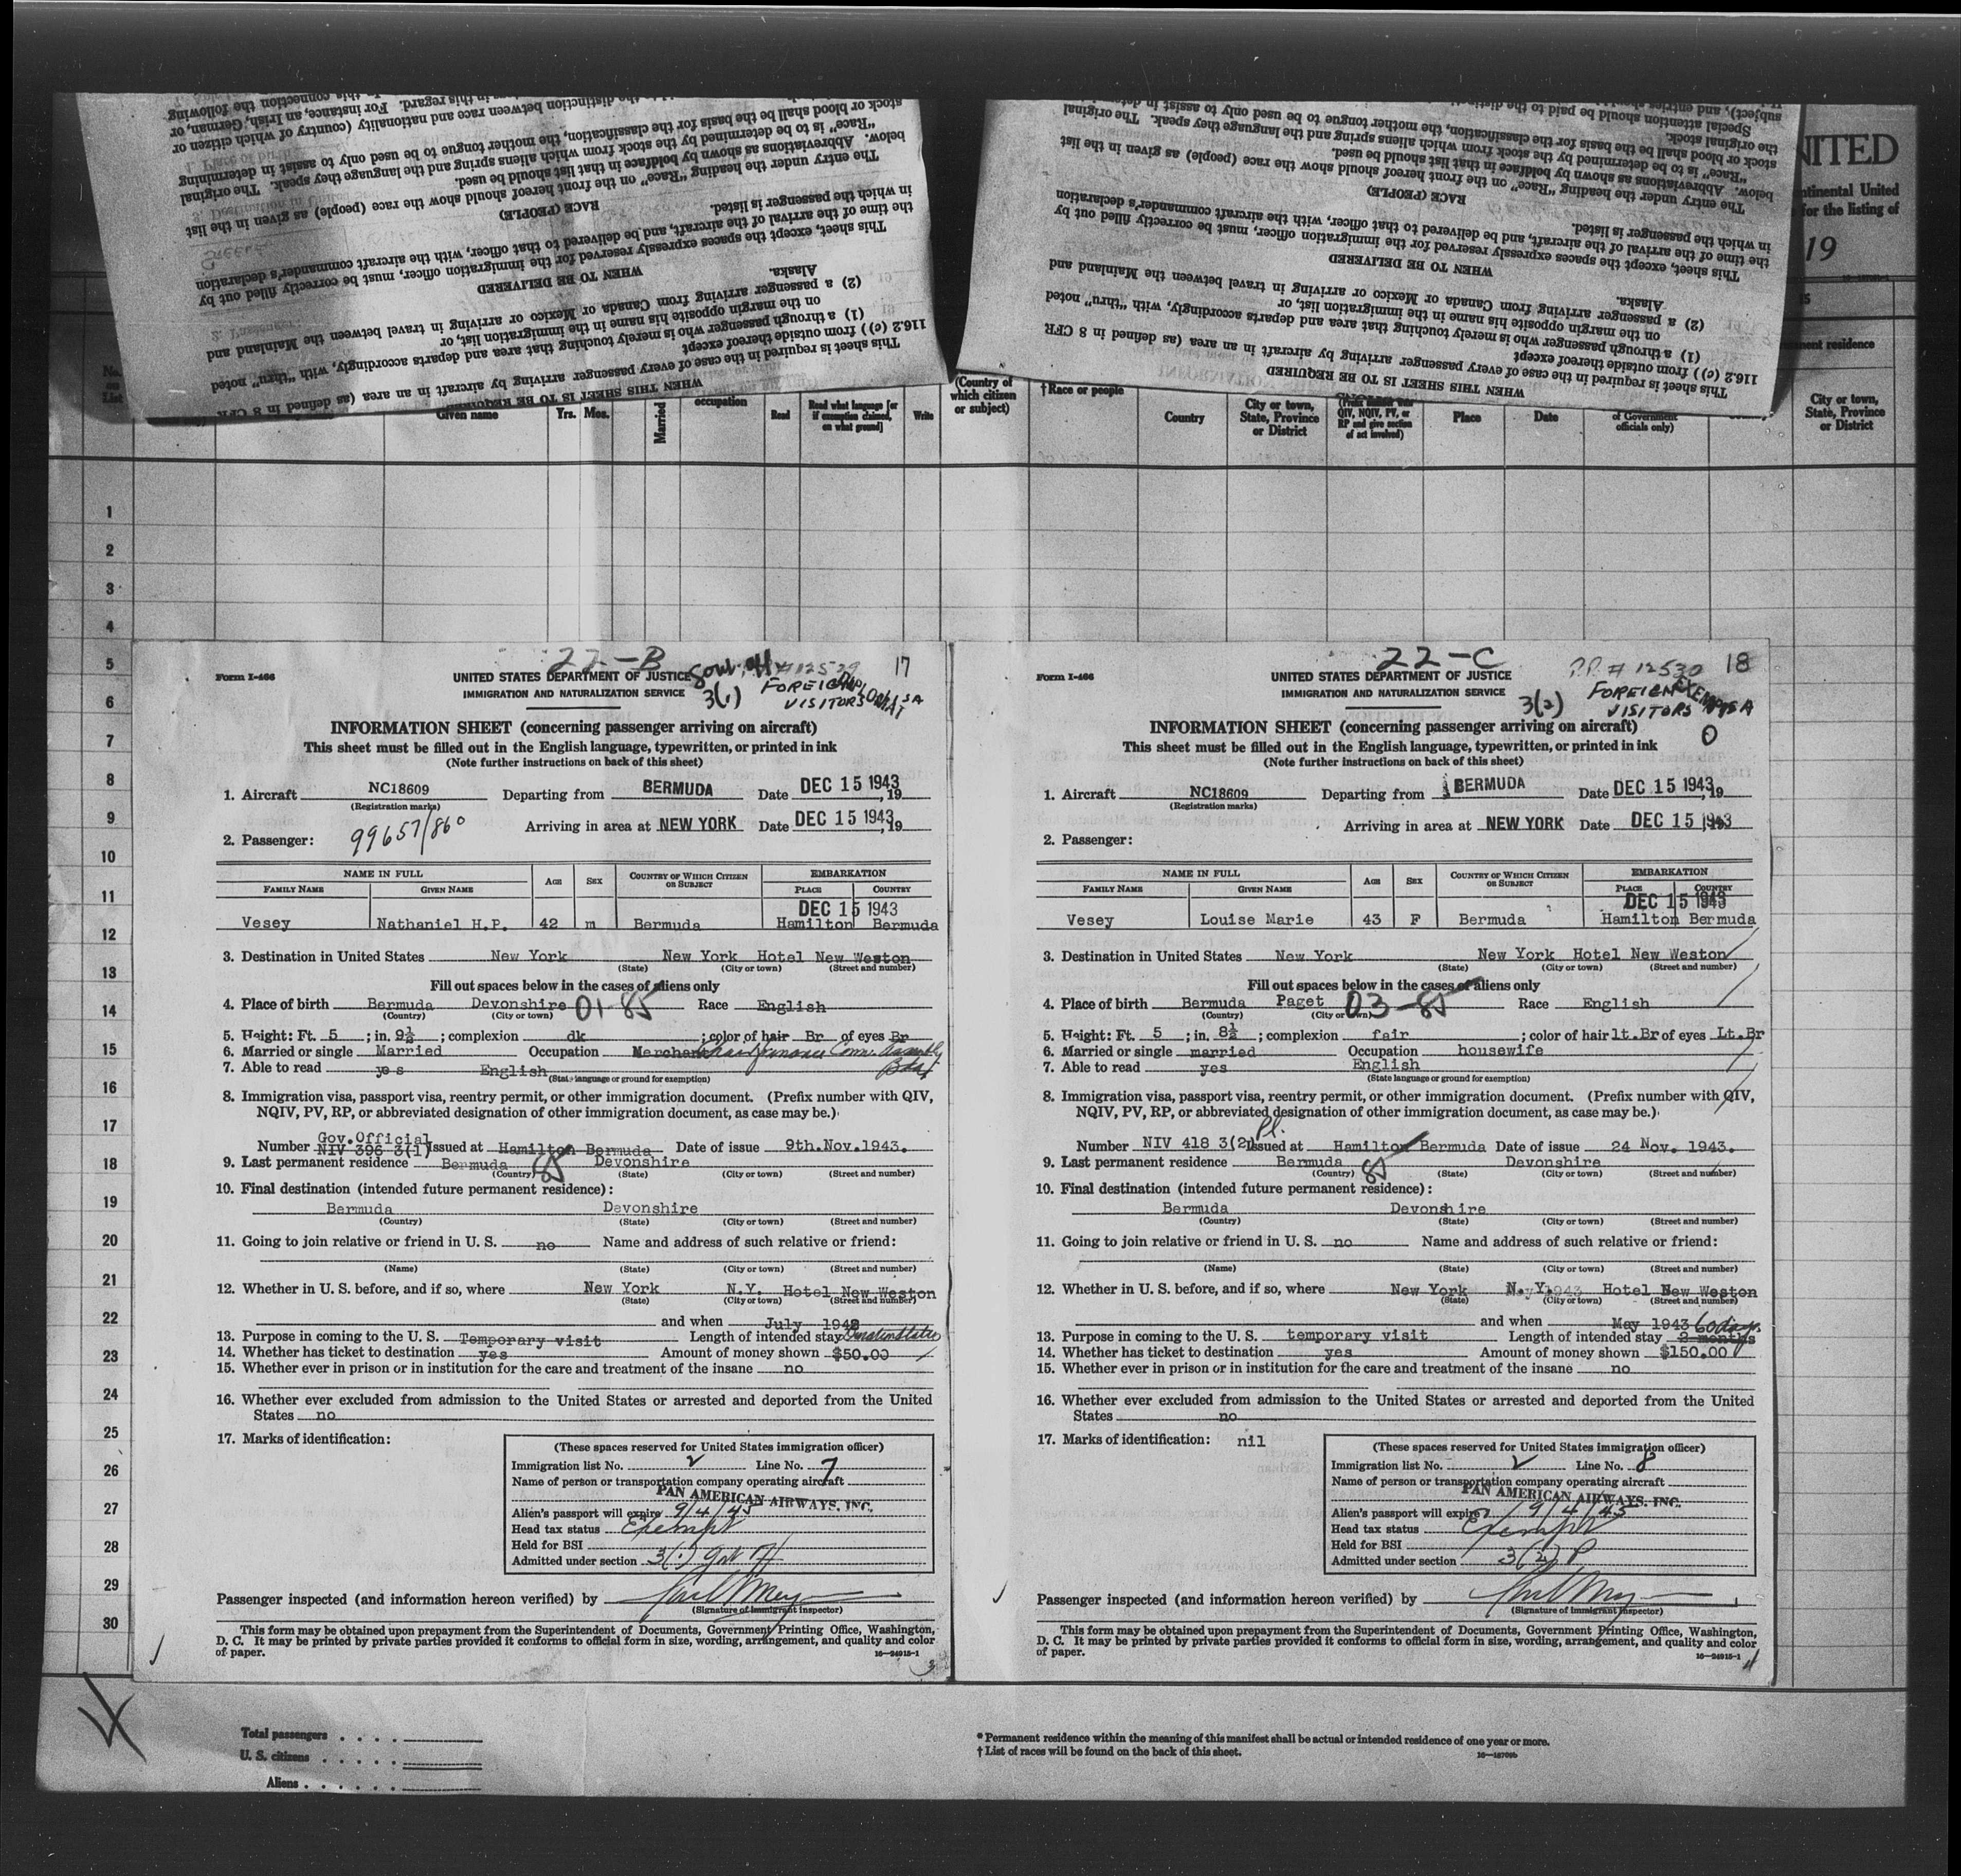 NITED
ntinental United
for the listing of
19
subject), and entries
Special attention should be paid to the
the original stock.
stock or blood shall be the basis for the classification, the mother tongue to be used only to assist in determining
"Race" is to be determined by the stock from which aliens spring and the language they speak. The original
below. Abbreviations as shown by boldface in that list should be used.
The entry under the heading "Race" on the front hereof should show the race (people) as given in the list
RACE (PEOPLE)
in which the passenger is listed.
the time of the arrival of the aircraft, and be delivered to that officer, with the aircraft commander's declaration
This sheet, except the spaces expressly reserved for the immigration officer, must be correctly filled out by
WHEN TO BE DELIVERED
Alaska.
(2) a passenger arriving from Canada or Mexico or arriving in travel between the Mainland and
on the margin opposite his name in the immigration list, or
(1) a through passenger who is merely touching that area and departs accordingly, with "thru" noted
116.2 (c)) from outside thereof except
This sheet is required in the case of every passenger arriving by aircraft in an area (as defined in 8 CFR
WHEN THIS SHEET IS TO BE REQUIRED
Given name
Yrs. Mos.
Married
occupation
Read
Read what language [or if exemption claimed, on what ground]
Write
(Country of which citizen or subject)
† Race or people
Country
City or town, State, Province or District
QIV, NQIV, PV, or RP and give section of act involved)
Place
Date
of Government officials only)
City or town, State, Province or District
1
2
3
4
5
6
7
8
9
10
11
12
13
14
15
16
17
18
19
20
21
22
23
24
25
26
27
28
29
30
22-B
17
Form I-466
UNITED STATES DEPARTMENT OF JUSTICE
IMMIGRATION AND NATURALIZATION SERVICE
3(1)
FOREIGN
VISITORS
INFORMATION SHEET (concerning passenger arriving on aircraft)
This sheet must be filled out in the English language, typewritten, or printed in ink
(Note further instructions on back of this sheet)
1. Aircraft NC18609 Departing from BERMUDA Date DEC 15 1943, 19
(Registration marks)
99657/860
Arriving in area at NEW YORK Date DEC 15 1943, 19
2. Passenger:
NAME IN FULL AGE SEX COUNTRY OF WHICH CITIZEN OR SUBJECT EMBARKATION
FAMILY NAME GIVEN NAME PLACE COUNTRY
DEC 15 1943
Vesey Nathaniel H.P. 42 m Bermuda Hamilton Bermuda
3. Destination in United States New York New York Hotel New Weston
(State) (City or town) (Street and number)
Fill out spaces below in the cases of aliens only
4. Place of birth Bermuda Devonshire 01-85 Race English
(Country) (City or town)
5. Height: Ft. 5; in. 9½; complexion dk; color of hair Br of eyes Br
6. Married or single Married Occupation Merchant
7. Able to read yes English
(State language or ground for exemption)
8. Immigration visa, passport visa, reentry permit, or other immigration document. (Prefix number with QIV,
NQIV, PV, RP, or abbreviated designation of other immigration document, as case may be.)
Gov.Official
Number NIV 396 3(1) Issued at Hamilton Bermuda Date of issue 9th.Nov.1943.
9. Last permanent residence Bermuda 85 Devonshire
(Country) (State) (City or town) (Street and number)
10. Final destination (intended future permanent residence):
Bermuda Devonshire
(Country) (State) (City or town) (Street and number)
11. Going to join relative or friend in U. S. no Name and address of such relative or friend:
(Name) (State) (City or town) (Street and number)
12. Whether in U. S. before, and if so, where New York N.Y. Hotel New Weston
(State) (City or town) (Street and number)
and when July
13. Purpose in coming to the U. S. Temporary visit Length of intended stay
14. Whether has ticket to destination yes Amount of money shown $50.00
15. Whether ever in prison or in institution for the care and treatment of the insane no
16. Whether ever excluded from admission to the United States or arrested and deported from the United
States no
17. Marks of identification:
(These spaces reserved for United States immigration officer)
Immigration list No. 2 Line No. 7
Name of person or transportation company operating aircraft
PAN AMERICAN AIRWAYS, INC.
Alien's passport will expire 9/4/45
Head tax status Exempt
Held for BSI
Admitted under section 3(1)
Passenger inspected (and information hereon verified) by
(Signature of Immigrant Inspector)
This form may be obtained upon prepayment from the Superintendent of Documents, Government Printing Office, Washington,
D. C. It may be printed by private parties provided it conforms to official form in size, wording, arrangement, and quality and color
of paper.
16—24915-1
22-C
P.P. # 12530 18
Form I-466
UNITED STATES DEPARTMENT OF JUSTICE
IMMIGRATION AND NATURALIZATION SERVICE
3(2)
FOREIGN
VISITORS
0
INFORMATION SHEET (concerning passenger arriving on aircraft)
This sheet must be filled out in the English language, typewritten, or printed in ink
(Note further instructions on back of this sheet)
1. Aircraft NC18609 Departing from BERMUDA Date DEC 15 1943, 19
(Registration marks)
Arriving in area at NEW YORK Date DEC 15 1943
2. Passenger:
NAME IN FULL AGE SEX COUNTRY OF WHICH CITIZEN OR SUBJECT EMBARKATION
FAMILY NAME GIVEN NAME PLACE COUNTRY
DEC 15 1943
Vesey Louise Marie 43 F Bermuda Hamilton Bermuda
3. Destination in United States New York New York Hotel New Weston
(State) (City or town) (Street and number)
Fill out spaces below in the cases of aliens only
4. Place of birth Bermuda Paget 03-85 Race English
(Country) (City or town)
5. Height: Ft. 5; in. 8½; complexion fair; color of hair lt.Br of eyes Lt.Br
6. Married or single married Occupation housewife
7. Able to read yes English
(State language or ground for exemption)
8. Immigration visa, passport visa, reentry permit, or other immigration document. (Prefix number with QIV,
NQIV, PV, RP, or abbreviated designation of other immigration document, as case may be.)
Number NIV 418 3(2) Pl. Issued at Hamilton Bermuda Date of issue 24 Nov. 1943.
9. Last permanent residence Bermuda 85 Devonshire
(Country) (State) (City or town) (Street and number)
10. Final destination (intended future permanent residence):
Bermuda Devonshire
(Country) (State) (City or town) (Street and number)
11. Going to join relative or friend in U. S. no Name and address of such relative or friend:
(Name) (State) (City or town) (Street and number)
12. Whether in U. S. before, and if so, where New York N.Y. Hotel New Weston
(State) (City or town) (Street and number)
and when May 1943
13. Purpose in coming to the U. S. temporary visit Length of intended stay 2 months 60 days
14. Whether has ticket to destination yes Amount of money shown $150.00
15. Whether ever in prison or in institution for the care and treatment of the insane no
16. Whether ever excluded from admission to the United States or arrested and deported from the United
States no
17. Marks of identification: nil
(These spaces reserved for United States immigration officer)
Immigration list No. 2 Line No. 8
Name of person or transportation company operating aircraft
PAN AMERICAN AIRWAYS, INC.
Alien's passport will expire 9/4/45
Head tax status Exempt
Held for BSI
Admitted under section 3(2) P
Passenger inspected (and information hereon verified) by
(Signature of Immigrant Inspector)
This form may be obtained upon prepayment from the Superintendent of Documents, Government Printing Office, Washington,
D. C. It may be printed by private parties provided it conforms to official form in size, wording, arrangement, and quality and color
of paper.
16—24915-1
Total passengers
U. S. citizens
Aliens
* Permanent residence within the meaning of this manifest shall be actual or intended residence of one year or more.
† List of races will be found on the back of this sheet.